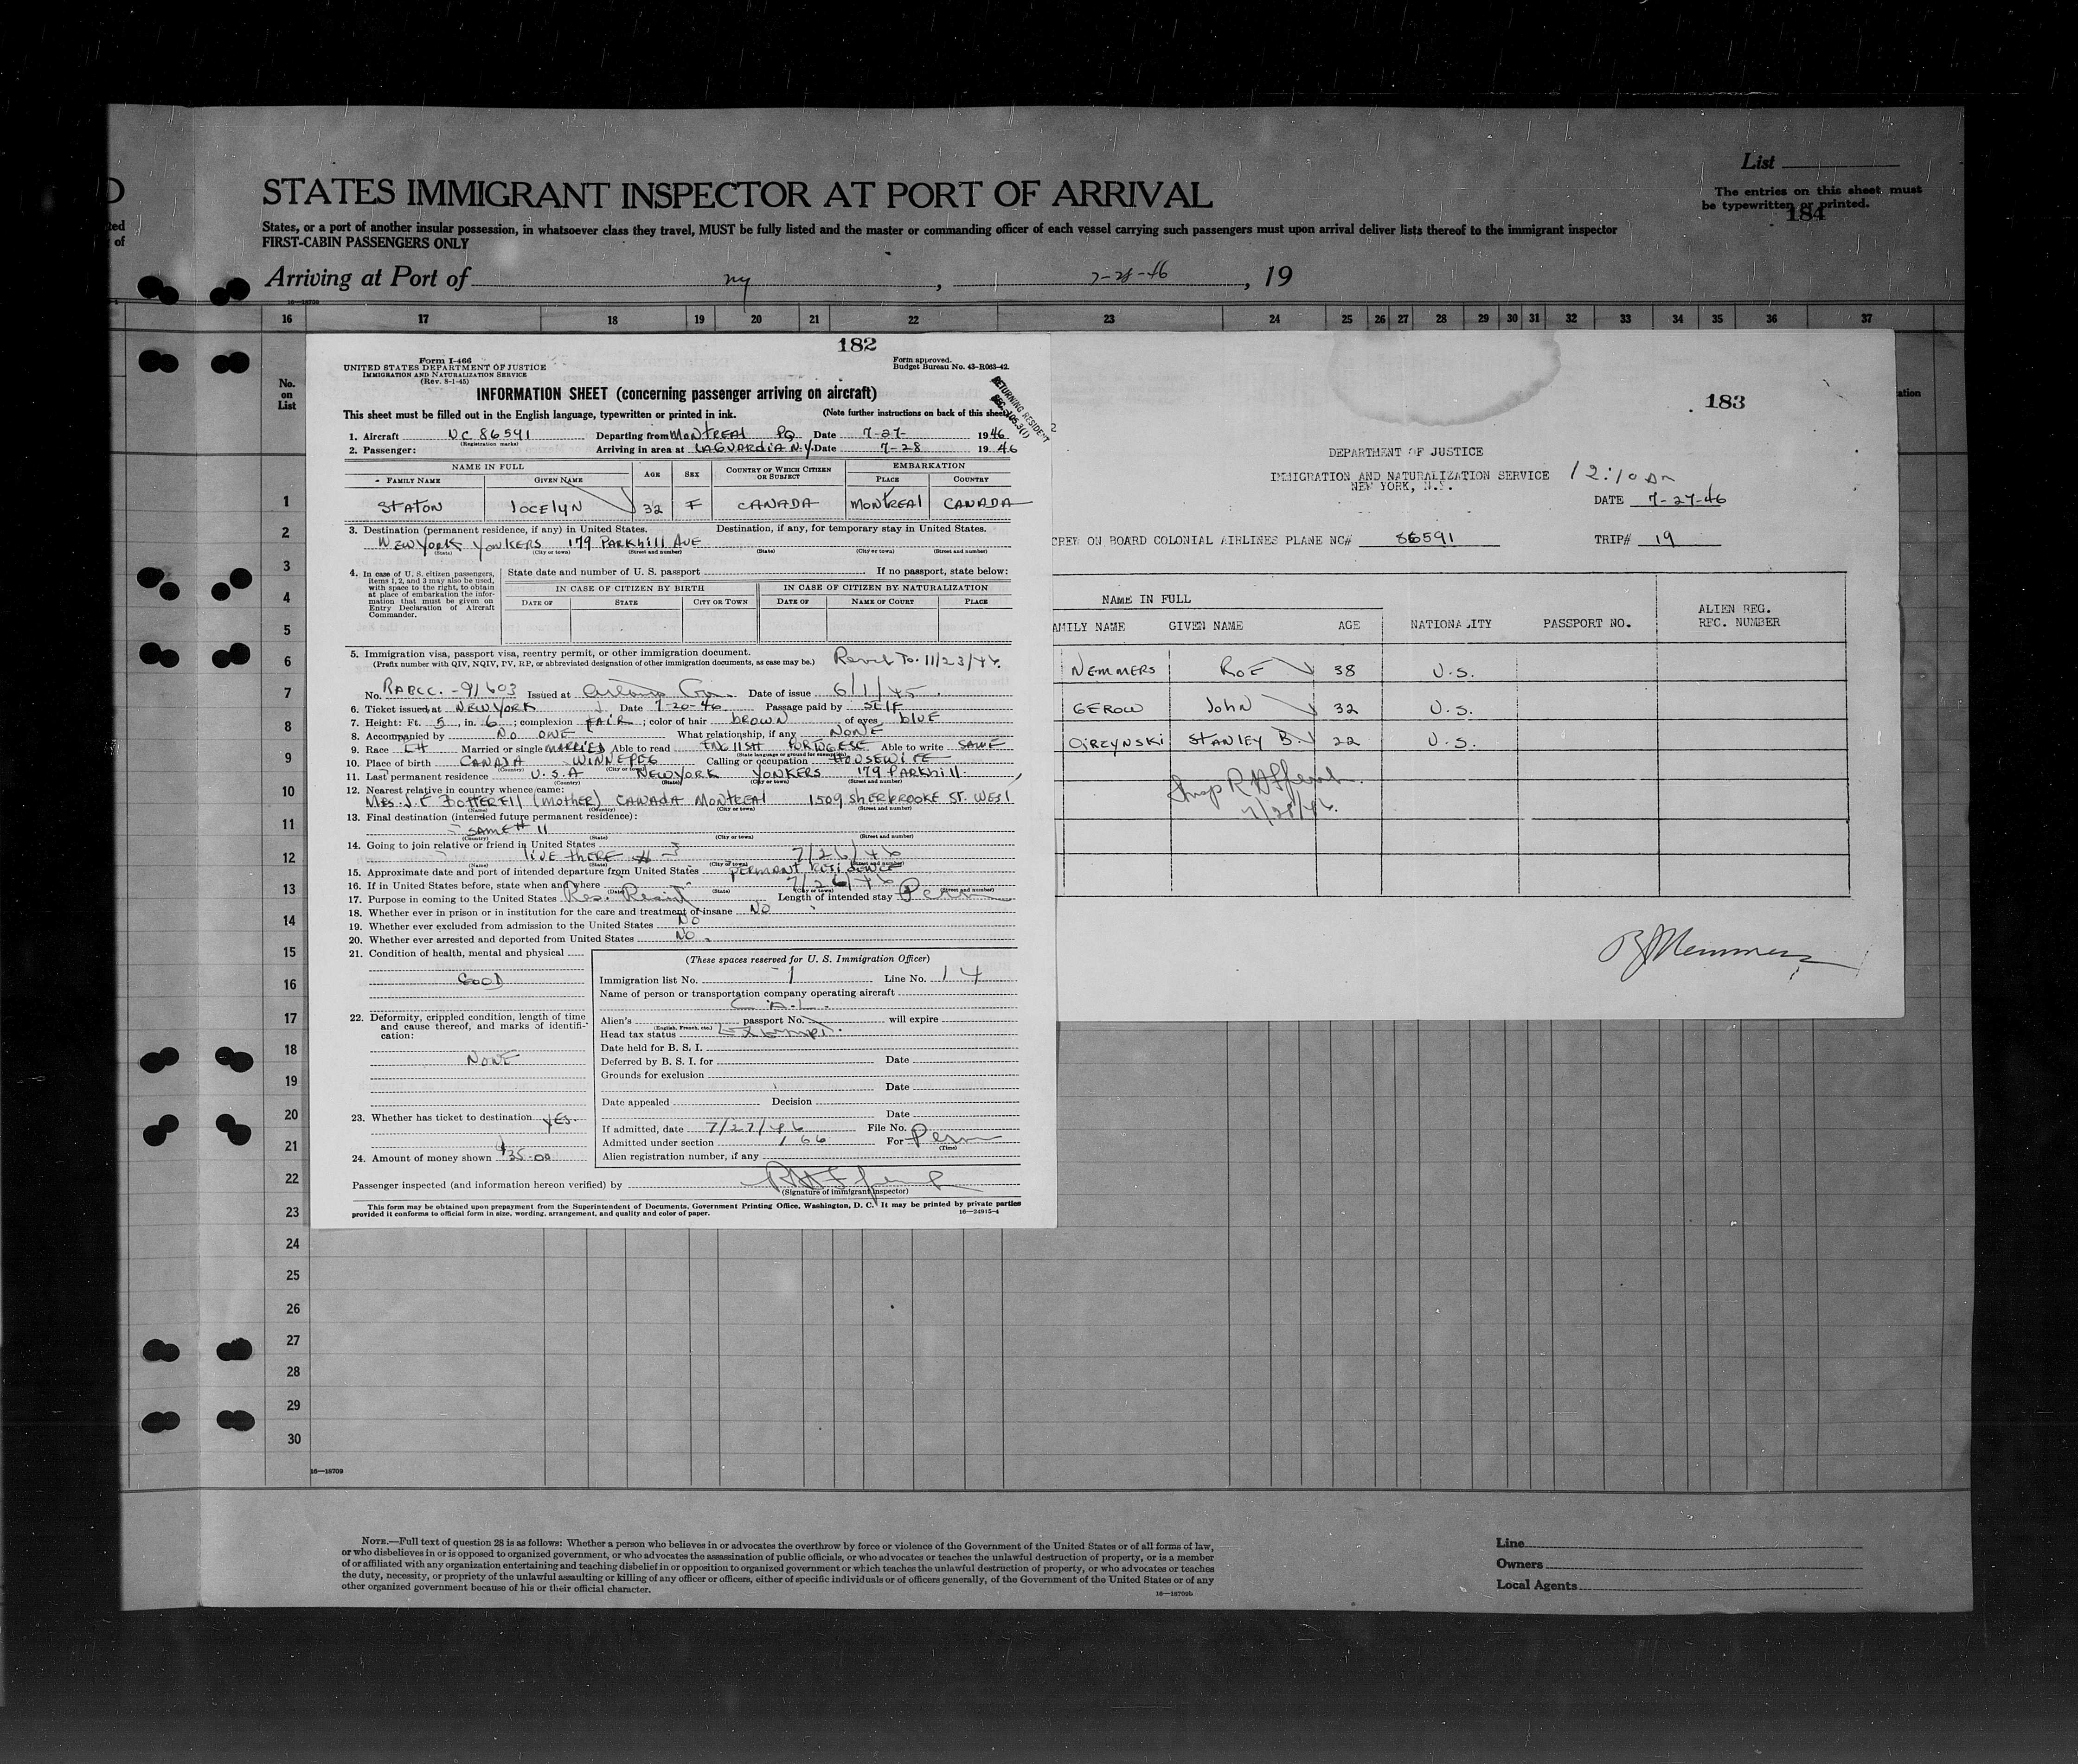 List
STATES IMMIGRANT INSPECTOR AT PORT OF ARRIVAL
The entries on this sheet must
be typewritten or printed.
184
States, or a port of another insular possession, in whatsoever class they travel, MUST be fully listed and the master or commanding officer of each vessel carrying such passengers must upon arrival deliver lists thereof to the immigrant inspector
FIRST-CABIN PASSENGERS ONLY
Arriving at Port of ny , 7-28-46 , 19
16—18709
16 17 18 19 20 21 22 23 24 25 26 27 28 29 30 31 32 33 34 35 36 37
No.
on
List
182
Form I-466
UNITED STATES DEPARTMENT OF JUSTICE
IMMIGRATION AND NATURALIZATION SERVICE
(Rev. 8-1-45)
Form approved.
Budget Bureau No. 43-R063-42.
INFORMATION SHEET (concerning passenger arriving on aircraft)
RETURNING RESIDENT
This sheet must be filled out in the English language, typewritten or printed in ink. (Note further instructions on back of this sheet)
1. Aircraft NC 86591 Departing from MONTREAL PQ Date 7-27- 1946
(Registration marks)
2. Passenger: Arriving in area at LAGUARDIA N.Y. Date 7-28 1946
NAME IN FULL AGE SEX COUNTRY OF WHICH CITIZEN OR SUBJECT EMBARKATION
FAMILY NAME GIVEN NAME PLACE COUNTRY
STATON JOCELYN 32 F CANADA MONTREAL CANADA
3. Destination (permanent residence, if any) in United States. Destination, if any, for temporary stay in United States.
NEW YORK YONKERS 179 PARKHILL AVE
(State) (City or town) (Street and number) (State) (City or town) (Street and number)
4. In case of U. S. citizen passengers, items 1, 2, and 3 may also be used, with space to the right, to obtain at place of embarkation the information that must be given on Entry Declaration of Aircraft Commander.
State date and number of U. S. passport If no passport, state below:
IN CASE OF CITIZEN BY BIRTH IN CASE OF CITIZEN BY NATURALIZATION
DATE OF STATE CITY OR TOWN DATE OF NAME OF COURT PLACE
5. Immigration visa, passport visa, reentry permit, or other immigration document.
(Prefix number with QIV, NQIV, PV, RP, or abbreviated designation of other immigration documents, as case may be.) To. 11/23/46.
No. RABCC.-91603 Issued at Date of issue 6/1/45.
6. Ticket issued at NEW YORK Date 7-20-46 Passage paid by SELF
7. Height: Ft. 5, in. 6; complexion FAIR; color of hair BROWN of eyes BLUE
8. Accompanied by NO ONE What relationship, if any NONE
9. Race Married or single MARRIED Able to read ENGLISH PORTUGESE Able to write SAME
10. Place of birth CANADA WINNEPEG Calling or occupation HOUSEWIFE
11. Last permanent residence U.S.A NEW YORK YONKERS 179 PARKHILL
12. Nearest relative in country whence came:
MRS. J.E BOTTERELL (MOTHER) CANADA MONTREAL 1509 SHERBROOKE ST. WEST
13. Final destination (intended future permanent residence):
SAME # 11
14. Going to join relative or friend in United States
LIVE THERE # 3 7/26/46
15. Approximate date and port of intended departure from United States PERMANT RESIDENCE
16. If in United States before, state when and where 7/26/46
17. Purpose in coming to the United States Length of intended stay Perm
18. Whether ever in prison or in institution for the care and treatment of insane NO
19. Whether ever excluded from admission to the United States NO
20. Whether ever arrested and deported from United States NO.
21. Condition of health, mental and physical
GOOD
22. Deformity, crippled condition, length of time and cause thereof, and marks of identification:
NONE
23. Whether has ticket to destination YES.
24. Amount of money shown $35.00
(These spaces reserved for U. S. Immigration Officer)
Immigration list No. 1 Line No. 14
Name of person or transportation company operating aircraft
C.A.L.
Alien's passport No. will expire
(English, French, etc.)
Head tax status Exempt.
Date held for B. S. I.
Deferred by B. S. I. for Date
Grounds for exclusion
Date
Date appealed Decision
Date
If admitted, date 7/27/46 File No.
Admitted under section 166 For Perm
(Time)
Alien registration number, if any
Passenger inspected (and information hereon verified) by
(Signature of immigrant inspector)
This form may be obtained upon prepayment from the Superintendent of Documents, Government Printing Office, Washington, D. C. It may be printed by private parties
provided it conforms to official form in size, wording, arrangement, and quality and color of paper. 16—24915-4
183
DEPARTMENT OF JUSTICE
IMMIGRATION AND NATURALIZATION SERVICE
NEW YORK, N.Y.
12:10 am
DATE 7-27-46
CREW ON BOARD COLONIAL AIRLINES PLANE NC# 86591 TRIP# 19
NAME IN FULL
AMILY NAME GIVEN NAME AGE NATIONALITY PASSPORT NO. ALIEN REG. REC. NUMBER
NEMMERS ROE 38 U.S.
GEROW JOHN 32 U.S.
OIRZYNSKI STANLEY B. 22 U.S.
7/28/46.
RJ Nemmers
1
2
3
4
5
6
7
8
9
10
11
12
13
14
15
16
17
18
19
20
21
22
23
24
25
26
27
28
29
30
16—18709
NOTE.—Full text of question 28 is as follows: Whether a person who believes in or advocates the overthrow by force or violence of the Government of the United States or of all forms of law,
or who disbelieves in or is opposed to organized government, or who advocates the assassination of public officials, or who advocates or teaches the unlawful destruction of property, or is a member
of or affiliated with any organization entertaining and teaching disbelief in or opposition to organized government or which teaches the unlawful destruction of property, or who advocates or teaches
the duty, necessity, or propriety of the unlawful assaulting or killing of any officer or officers, either of specific individuals or of officers generally, of the Government of the United States or of any
other organized government because of his or their official character.
16—18709b
Line
Owners
Local Agents